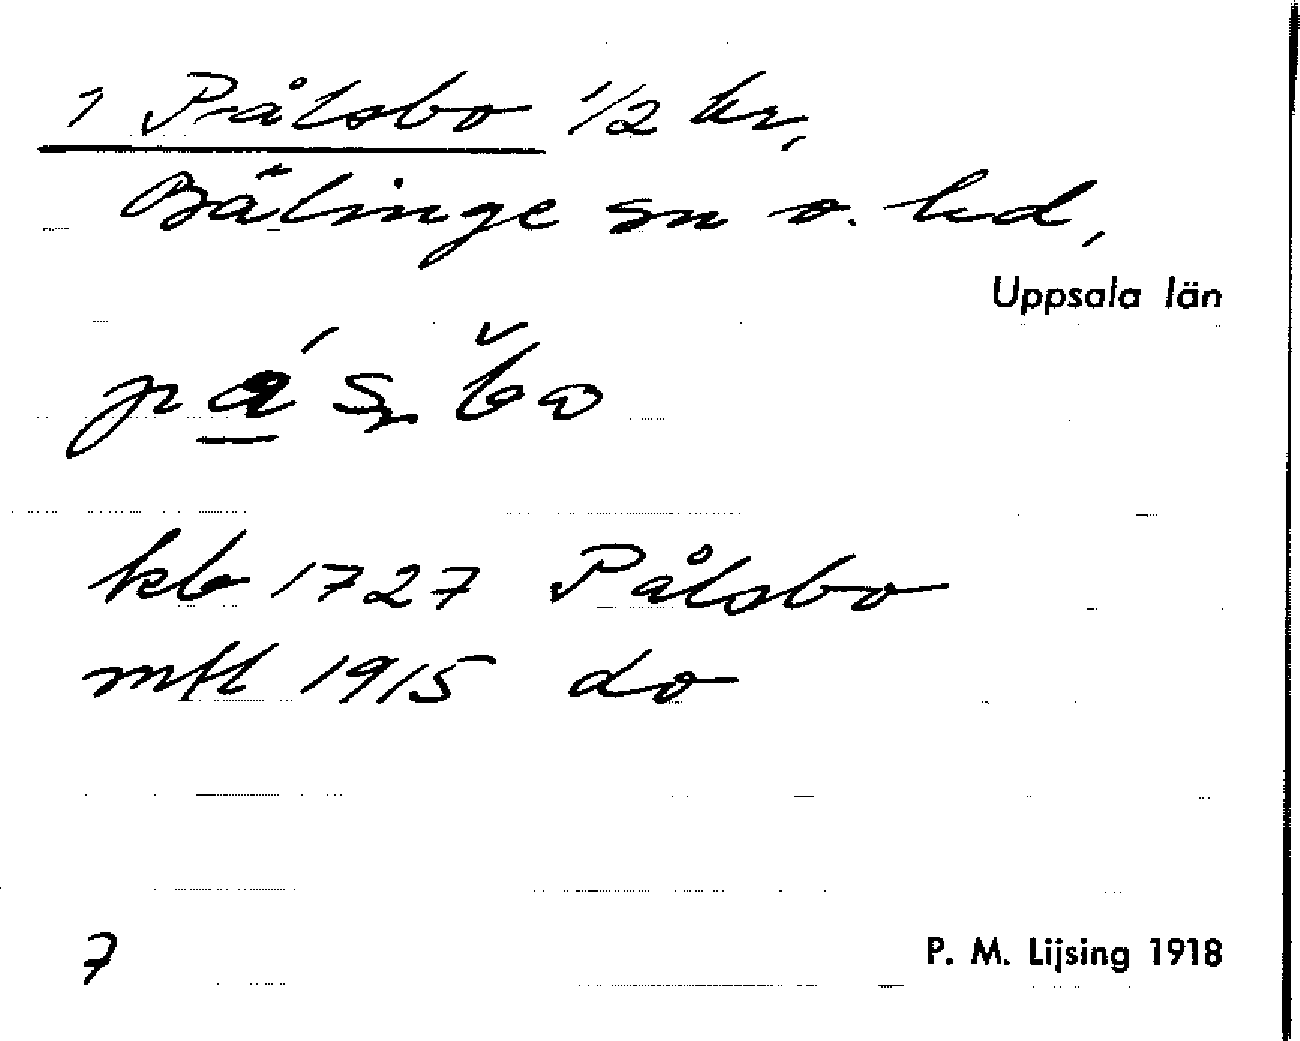 1 Pålsbo 1/2 hr,
Bälinge sn o. hd,
Uppsala län
kb 1727 Pålsbo
mtl 1915 do
7
P. M. Lijsing 1918